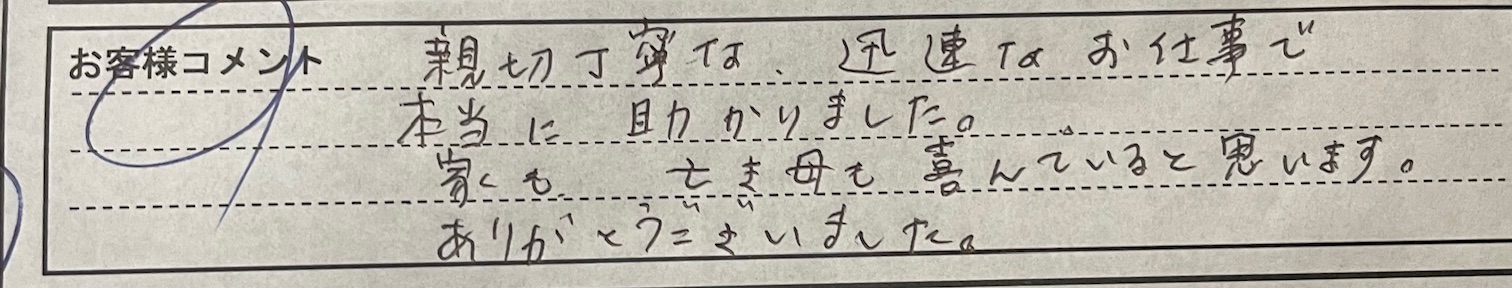 お客様コメント 親切丁寧な、迅速なお仕事で
本当に助かりました。
家も、亡き母も喜んでいると思います。
ありがとうございました。